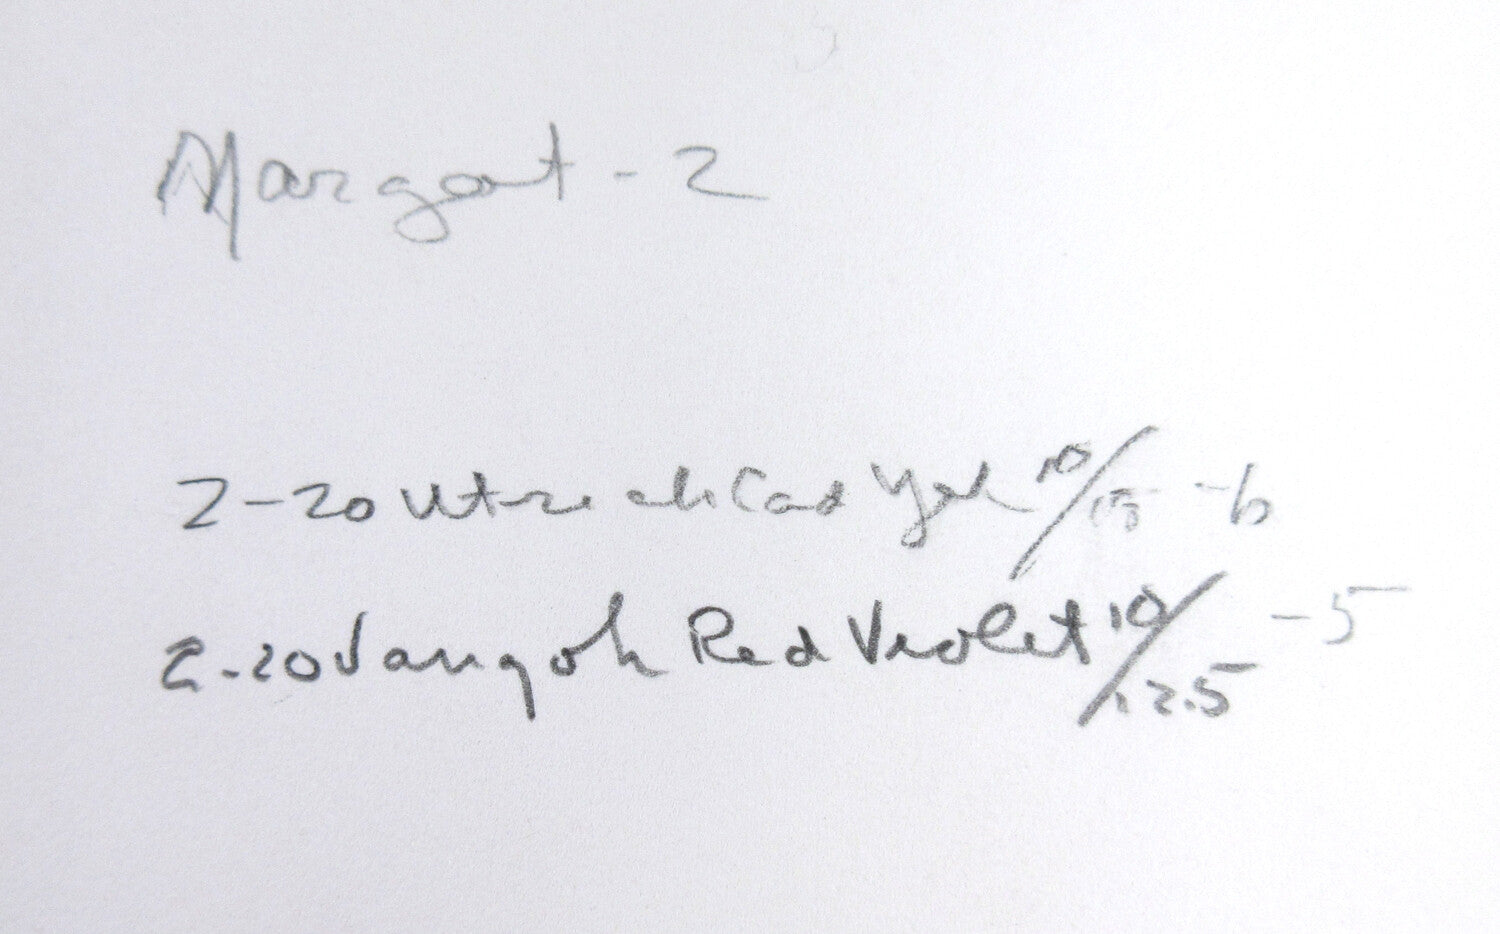 Margout - 2
2-20 Utrech Cad Yel 10/15 -6
2-20 Vangoh Red Violet 10/12.5 -5